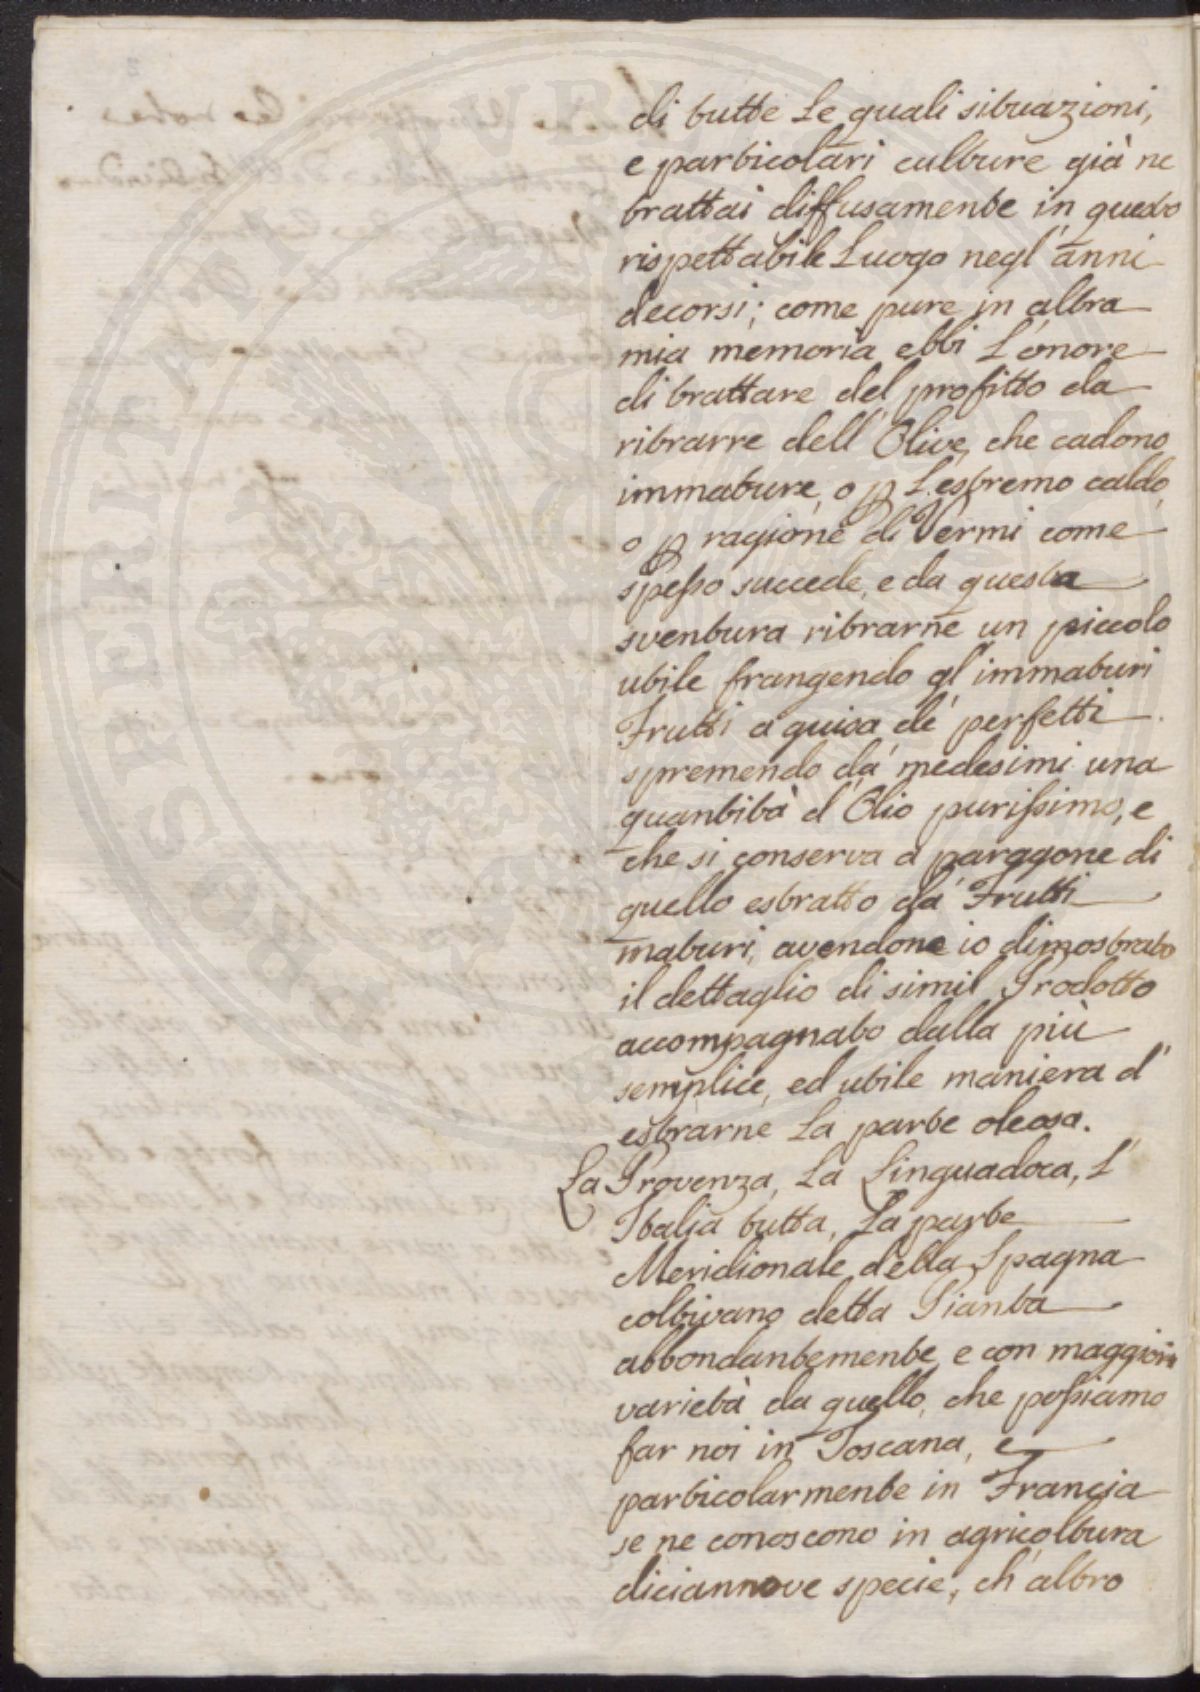 di tutte le quali situazioni,
e particolari culture già ne
trattai diffusamente in questo
rispettabile Luogo negl'anni
decorsi; come pure in altra
mia memoria ebbi l'onore
di trattare del profitto da
ritrarre dell'Olive, che cadono
immature, o p l'estremo caldo,
o p ragione di Vermi come
spesso succede, e da questa
sventura ritrarne un piccolo
utile frangendo gl'immaturi
Frutti a guisa de' perfetti
spremendo da' medesimi una
quantità d'Olio purissimo, e
che si conserva a paraggone di
quello estratto da' Frutti
maturi, avendone io dimostrato
il dettaglio di simil Prodotto
accompagnato dalla più
semplice, ed utile maniera d'
estrarne la parte oleosa.
La Provenza, la Linguadoca, l'
Italia tutta, la parte
Meridionale della Spagna
coltivano detta Pianta
abbondantemente e con maggiore
varietà da quello, che possiamo
far noi in Toscana, e
particolarmente in Francia
se ne conoscono in agricoltura
diciannove specie, ch'altro
PROSPERITATI PUBL